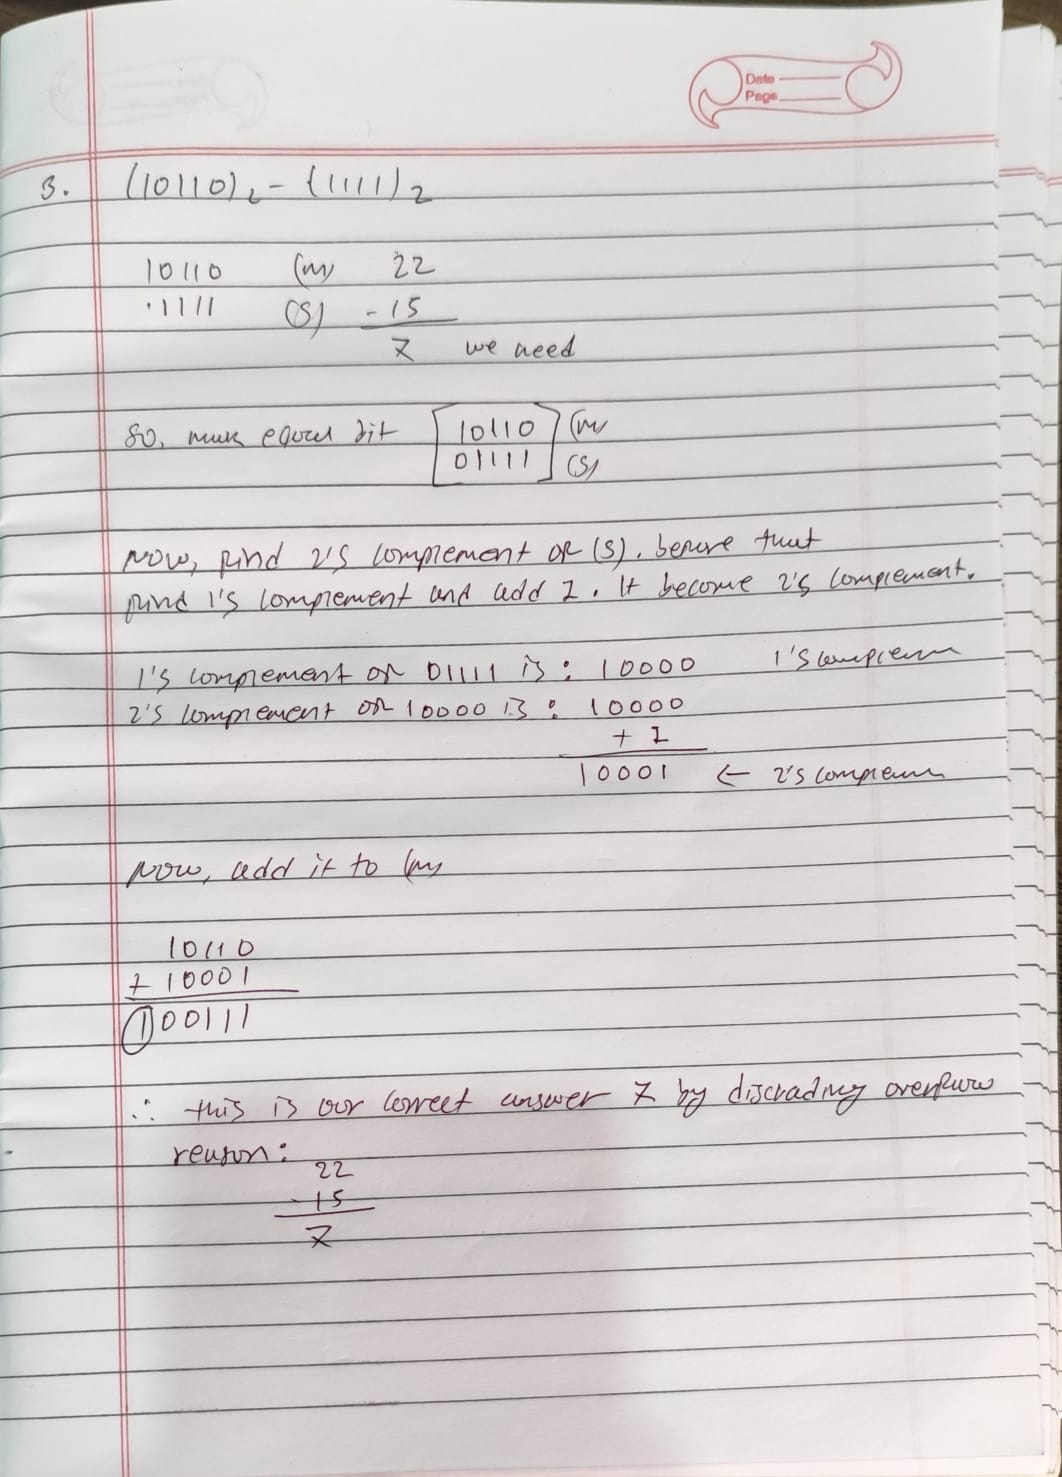 Date
Page
3. (10110)₂ - (1111)₂
10110 (m) 22
.1111 (S) - 15
7 we need
So, make equal bit [10110] (m)
[01111] (S)
Now, find 2's complement of (S). before that
find 1's complement and add 1. It become 2's complement.
1's complement of 01111 is: 10000 1's complem
2's complement of 10000 is: 10000
+ 1
10001 ← 2's complem
Now, add it to (m)
10110
+ 10001
①00111
∴ this is our correct answer 7 by discrading overflow
reason:
22
- 15
7